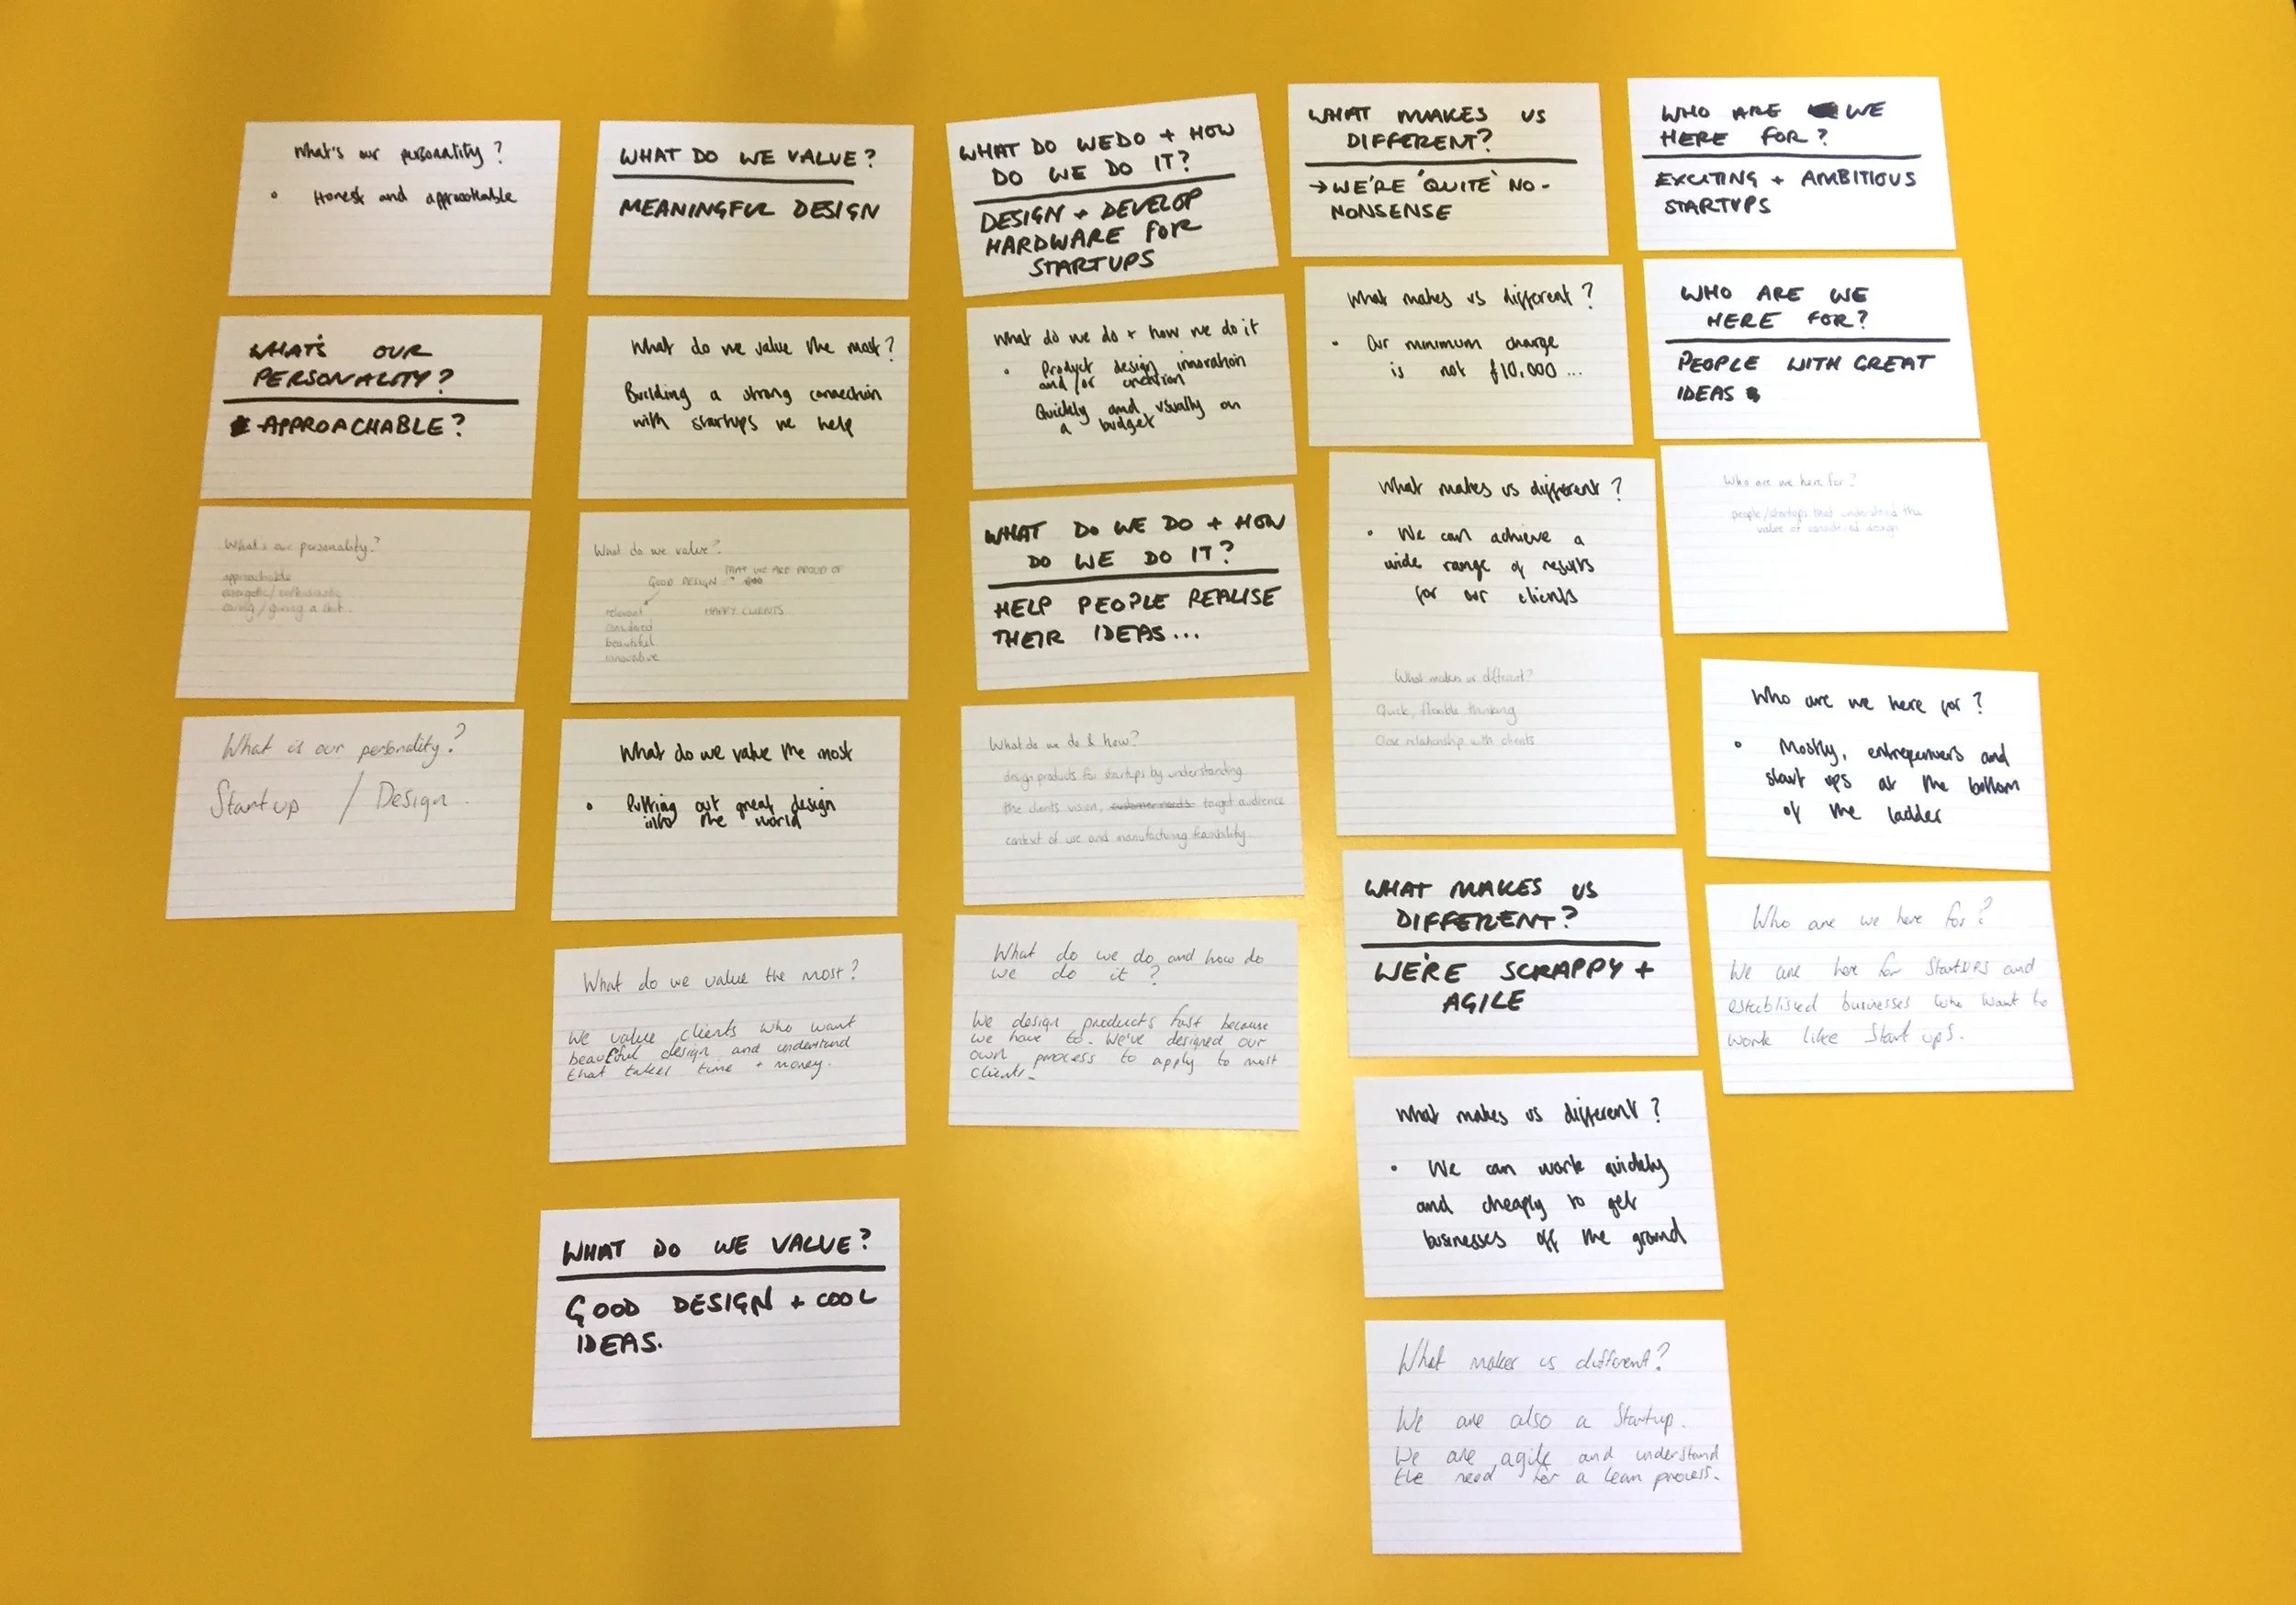 What's our personality?
• Honest and approachable
WHAT'S OUR
PERSONALITY?
APPROACHABLE?
What's our personality?
approachable
energetic / enthusiastic
caring / giving a shit.
What is our personality?
Startup / Design.
WHAT DO WE VALUE?
MEANINGFUL DESIGN
What do we value the most?
Building a strong connection
with startups we help
What do we value?
THAT WE ARE PROUD OF
GOOD DESIGN
relevant
HAPPY CLIENTS
considered
beautiful
innovative
What do we value the most
• Putting out great design
into the world
What do we value the most?
We value clients who want
beautiful design and understand
that takes time + money.
WHAT DO WE VALUE?
GOOD DESIGN + COOL
IDEAS.
WHAT DO WE DO + HOW
DO WE DO IT?
DESIGN + DEVELOP
HARDWARE FOR
STARTUPS
What do we do + how we do it
• Product design innovation
and/or creation
Quickly and usually on
a budget
WHAT DO WE DO + HOW
DO WE DO IT?
HELP PEOPLE REALISE
THEIR IDEAS...
What do we do & how?
design products for startups by understanding
the clients vision, customer needs target audience
context of use and manufacturing feasibility.
What do we do and how do
we do it?
We design products fast because
we have to. We've designed our
own process to apply to most
clients.
WHAT MAKES US
DIFFERENT?
→ WE'RE 'QUITE' NO-
NONSENSE
What makes us different?
• Our minimum charge
is not £10,000...
What makes us different?
• We can achieve a
wide range of results
for our clients
What makes us different?
Quick, flexible thinking
Close relationship with clients
WHAT MAKES US
DIFFERENT?
WE'RE SCRAPPY +
AGILE
What makes us different?
• We can work quickly
and cheaply to get
businesses off the ground
What makes us different?
We are also a Startup.
We are agile and understand
the need for a lean process.
WHO ARE WE
HERE FOR?
EXCITING + AMBITIOUS
STARTUPS
WHO ARE WE
HERE FOR?
PEOPLE WITH GREAT
IDEAS
Who are we here for?
people/startups that understand the
value of considered design
Who are we here for?
• Mostly, entrepeneurs and
start ups at the bottom
of the ladder
Who are we here for?
We are here for StartUPS and
established businesses who want to
work like Start ups.